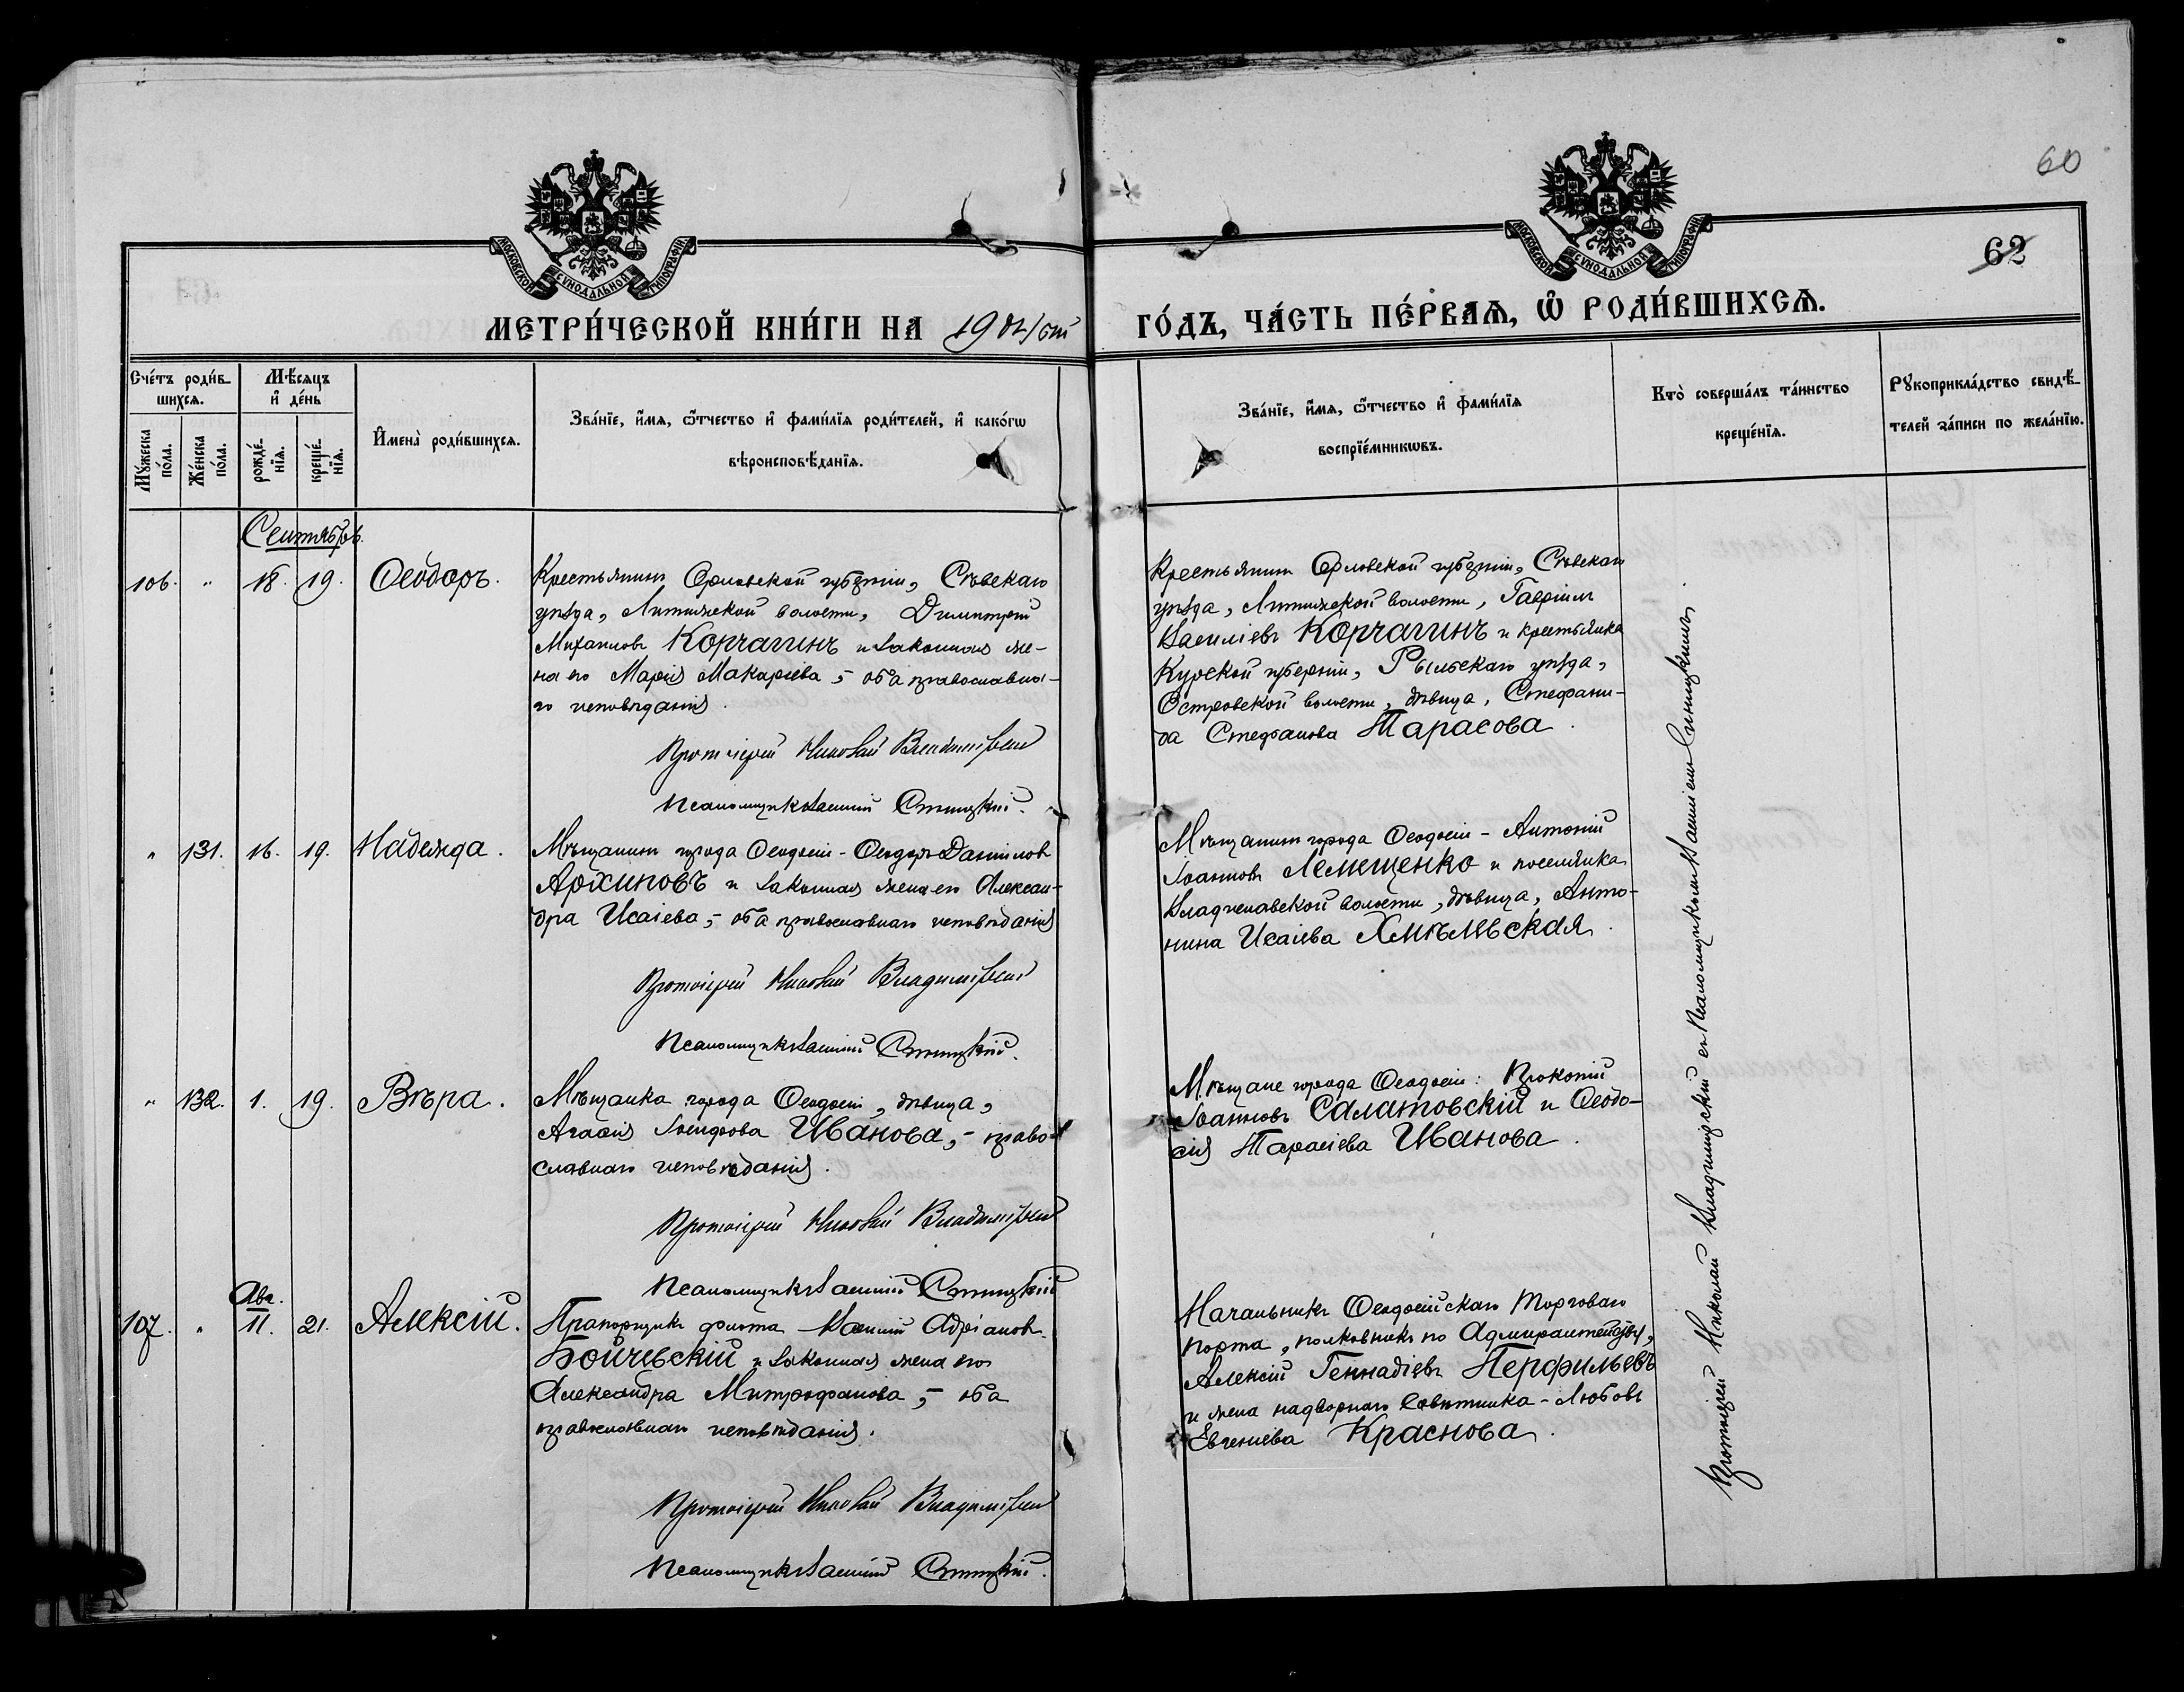 60
62
МОСКОВСКОЙ СѴНОДАЛЬНОЙ ТИПОГРАФІИ
МОСКОВСКОЙ СѴНОДАЛЬНОЙ ТИПОГРАФІИ
МЕТРИ́ЧЕСКОЙ КНИ́ГИ НА 19 ГО́ДЪ, ЧА́СТЬ ПЕ́РВАЯ, Ѿ РОДИ́ВШИХСѦ.
Сче́тъ роди́в-
шихсѧ.
Мꙋ́жеска по́ла.
Же́нска по́ла.
Мѣ́сяцъ и҆ де́нь
рожде́-нїѧ.
креще́-нїѧ.
И҆мена̀ роди́вшихсѧ.
Зва́нїе, и҆́мѧ, ѻ҆́тчество и҆ фами́лїѧ роди́телей, и҆ како́гѡ
вѣроисповѣ́данїѧ.
Зва́нїе, и҆́мѧ, ѻ҆́тчество и҆ фами́лїѧ
воспрїе́мникѡвъ.
Кто̀ соверша́лъ та́инство
креще́нїѧ.
Рꙋкоприкла́дство свидѣ́-
телей за́писи по жела́нїю.
Сентябрь.
106. " 18. 19. Ѳеодоръ.
Крестьянинъ Орловской губерніи, Сѣвскаго
уѣзда, Литижской волости, Димитрій
Михаиловъ Корчагинъ и законная же-
на его Марія Макаріева, - оба православна-
го исповѣданія.
Протоіерей Николай Владимірскій
Псаломщикъ Василій Синицкій.
Крестьянинъ Орловской губерніи, Сѣвскаго
уѣзда, Литижской волости, Гавріилъ
Василіевъ Корчагинъ и крестьянка
Курской губерніи, Рыльскаго уѣзда,
Островской волости, дѣвица, Стефани-
да Стефанова Тарасова.
" 131. 16. 19. Надежда.
Мѣщанинъ города Ѳеодосіи - Ѳеодоръ Даниловъ
Архиповъ и законная жена его Алексан-
дра Исаіева, - оба православнаго исповѣданія
Протоіерей Николай Владимірскій
Псаломщикъ Василій Синицкій.
Мѣщанинъ города Ѳеодосіи - Антоній
Іоанновъ Лемищенко и поселянка
Владиславской волости, дѣвица, Анто-
нина Исаіева Хмѣльская.
" 132. 1. 19. Вѣра.
Мѣщанка города Ѳеодосіи, дѣвица,
Агаѳія Іосифова Иванова, - право-
славнаго исповѣданія.
Протоіерей Николай Владимірскій
Псаломщикъ Василій Синицкій
Мѣщане города Ѳеодосіи: Прокопій
Іоанновъ Салатовскій и Ѳеодо-
сія Тарасіева Иванова.
Авг.
107. " 11. 21. Алексій.
Прапорщикъ флота Василій Адріановъ
Бойчевскій и законная жена его
Александра Митрофанова, - оба
православнаго исповѣданія.
Протоіерей Николай Владимірскій
Псаломщикъ Василій Синицкій.
Начальникъ Ѳеодосійскаго Торговаго
порта, полковникъ по Адмиралтейству,
Алексій Геннадіевъ Перфильевъ
и жена надворнаго Совѣтника - Любовь
Евгеніева Краснова.
Протоіерей Николай Владимірскій съ Псаломщикомъ Василіемъ Синицкимъ.